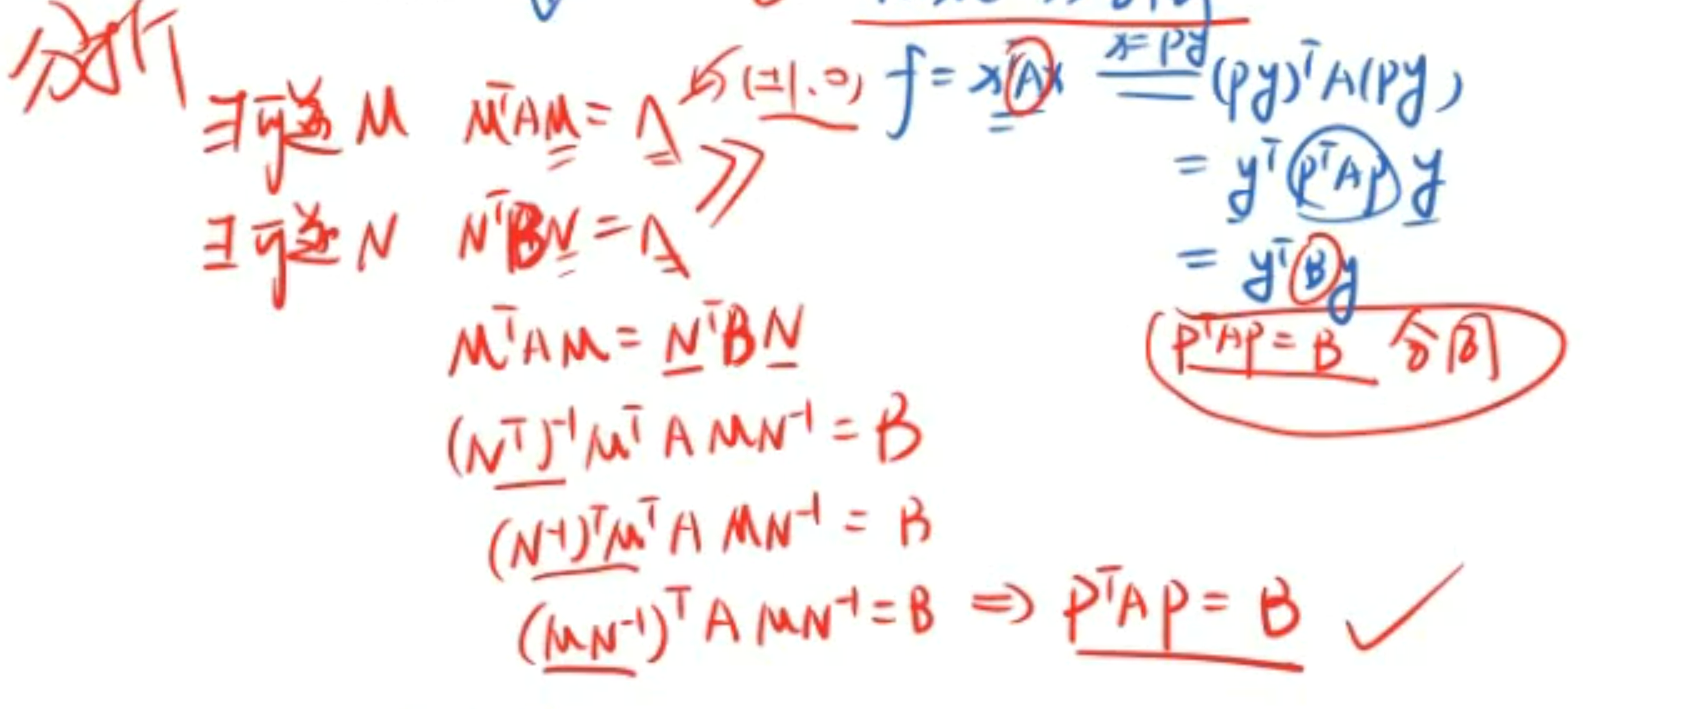 分析
∃可逆 M  MᵀAM = Λ  (±1, 0)
∃可逆 N  NᵀBN = Λ
MᵀAM = NᵀBN
(Nᵀ)⁻¹MᵀAMN⁻¹ = B
(N⁻¹)ᵀMᵀAMN⁻¹ = B
(MN⁻¹)ᵀAMN⁻¹ = B ⇒ PᵀAP = B ✓
f = xᵀAx x=Py (Py)ᵀA(Py)
= yᵀ(PᵀAP)y
= yᵀBy
PᵀAP = B 合同